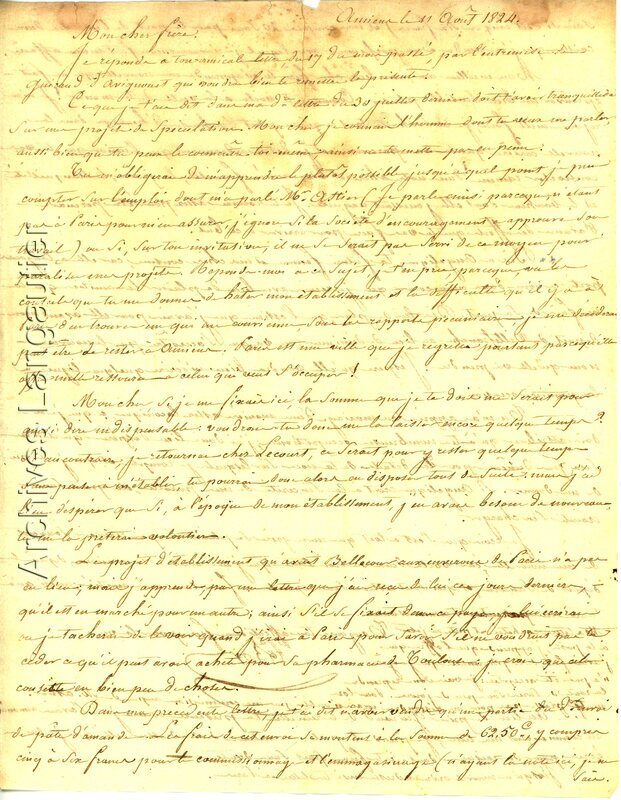 Amiens le 11 Août 1824.
Mon cher frère,
Je réponds à ton amicale lettre du 17 du mois passé, par l'entremise de
d'Avignon qui voudra bien te remettre la présente.
Ce que je t'ai dit dans ma dre lettre du 30 juillet dernier doit t'avoir tranquillisé
sur mon projet de spéculation. Mon cher, je connais l'homme dont tu veux me parler,
aussi bien que tu peux le connaître toi-même ainsi ne te mets pas en peine.
Tu m'obligeras de m'apprendre le plutôt possible jusqu'à quel point je puis
compter sur l'emploi dont m'a parlé Mr. Astier (je parle ainsi parceque n'étant
pas à Paris pour m'en assurer, j'ignore si la Société d'encouragement a approuvé son
travail) ou si, sur ton invitation, il ne se serait pas servi de ce moyen pour
mes projets. Réponds moi à ce sujet, je t'en prie, parceque, vu le
conseil que tu me donnes de hâter mon établissement et la difficulté qu'il y a
d'en trouver un qui me convienne sous les rapports pécuniaires je me
peut être de rester à Amiens. Paris est une ville que je regrette pourtant parcequ'elle
offre mille ressources à celui qui veut s'occuper!
Mon cher si je me fixais ici, la somme que je te dois me serait pour
ainsi dire indispensable: voudrais-tu donc me la laisser encore quelque temps?
Si au contraire, je retournais chez Lecourt, ce serait pour y rester quelque temps
sans penser à m'établir, tu pourrais donc alors en disposer tout de suite, mais j'ai
lieu d'espérer que si, à l'époque de mon établissement, j'en avais besoin de nouveau
tu me la prêterais volontiers.
Le projet d'établissement qu'avait Bellecour aux environs de Paris n'a pas
eu lieu; mais j'apprends, par une lettre que j'ai reçue de lui ces jours derniers,
qu'il est en marché pour un autre; ainsi s'il se fixait dans ce pays je lui écrirais
ou je tâcherais de le voir quand j'irai à Paris pour savoir s'il ne voudrait pas te
céder ce qu'il peut avoir acheté pour sa pharmacie de Toulouse; je crois que cela
consiste en bien peu de choses.
Dans ma précédente lettre, je t'ai dit n'avoir vendu qu'une partie de l'envoi
de pâte d'amande. Les frais de cet envoi se montent à la somme de 62,50c, y compris
cinq à six francs pour le commissionnage et l'emmagasinage (n'ayant la note ici, je ne
sais
Archives Langautier